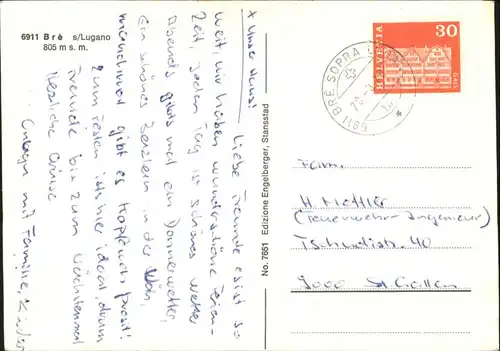 6911 Brè s/Lugano
805 m s. m.
+ Unser Heusi
Liebe Freunde es ist so
weit, wir haben wunderschöne Ferien-
Zeit, jeden Tag ist schönes Wetter
Abends gibts mal ein Donnerwetter,
Ein schönes in der Nähe,
manchmal gibt es Prost!
zum Festen ists hier ideal, drum
Freunde bis zum nächstenmal
Herzliche Grüsse
mit Familie,
No. 7651 Edizione Engelberger, Stansstad
HELVETIA
30
GAIS
6911 BRÈ SOPRA
Fam.
H. Mettler
(Feuerwehr-Ingenieur)
Tschudistr. 40
9000 St. Gallen